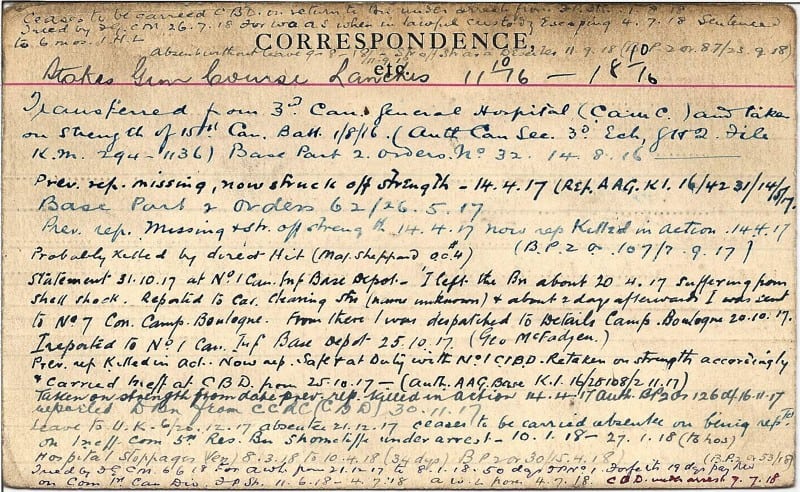 Ceases to be carried C.B.D. on return to this under arrest from
Tried by F.G.C.M. 26.7.18 For W.O.A.S. when in lawful custody Escaping 4.7.18 Sentenced
to 6 mos. I.H.L
Absent without leave 9-8-18 Str. off Str. as a Deserter 11.9.18 (B.P.2 or. 87/23.9.18)
CORRESPONDENCE,
etc.
Stokes Gun Course 11 10/16 — 18 10/16
Transferred from 3rd Can. General Hospital (C.A.M.C.) and taken
on strength of 15th Can. Batt. 1/8/16. (Auth Can Sec. 3rd Ech, G.H.Q. File
K.M. 294-1136) Base Part 2. orders No 32. 14.8.16
Prev. rep. missing, now struck off strength - 14.4.17 (REP. A.A.G. K.1. 16/42 31/14/5/17.
Base Part 2 Orders 62/26.5.17
Prev. rep. Missing & str. off strength 14.4.17 now rep Killed in action 14.4.17
(B.P.2 or. 107/7.9.17)
Probably Killed by direct Hit (Maj. Sheppard oc #4)
Statement 31.10.17 at No 1 Can. Inf Base Depot. - "I left the Bn about 20.4.17 suffering from
shell shock. Reported to Cas. Clearing Stn (name unknown) & about 2 days afterwards I was sent
to No 7 Con. Camp. Boulogne. From there I was despatched to Details Camp. Boulogne 20.10.17.
I reported to No 1 Can. Inf Base Depot 25.10.17. (Geo McFadyen.)
Prev. rep Killed in Act. Now rep. Safe & at Duty with No 1 C.I.B.D. Retaken on strength accordingly
& Carried Ineff at C.B.D. from 25.10.17 - (Auth. A.A.G. Base K.1. 16/28108/2.11.17)
Taken on strength from date prev. rep. Killed in action 14.4.17 auth. BP2 or 126 d/16.11.17
from C.C.R.C. (C.B.D) 30.11.17
Leave to U.K. 6/20.12.17 absentee 21.12.17 ceases to be carried absentee on being reptd
on Ineff. Com 5th Res. Bn Shorncliffe under arrest - 10.1.18 - 27.1.18
Hospital Stoppages (Ven) 8.3.18 to 10.4.18 (34 dys) B.P.2 or 30/15.4.18) (B.P.2 or 53/18)
Tried by F.G.C.M. 6.6.18 For A.W.L. from 21.12.17 to 8.1.18. 50 days F.P. No 1. Forfeits 19 days pay
on Com 1st Can Div. F.P. Stn. 11.6.18 - 4.7.18 A.W.L from 4.7.18 C.B.D. under arrest 9.7.18